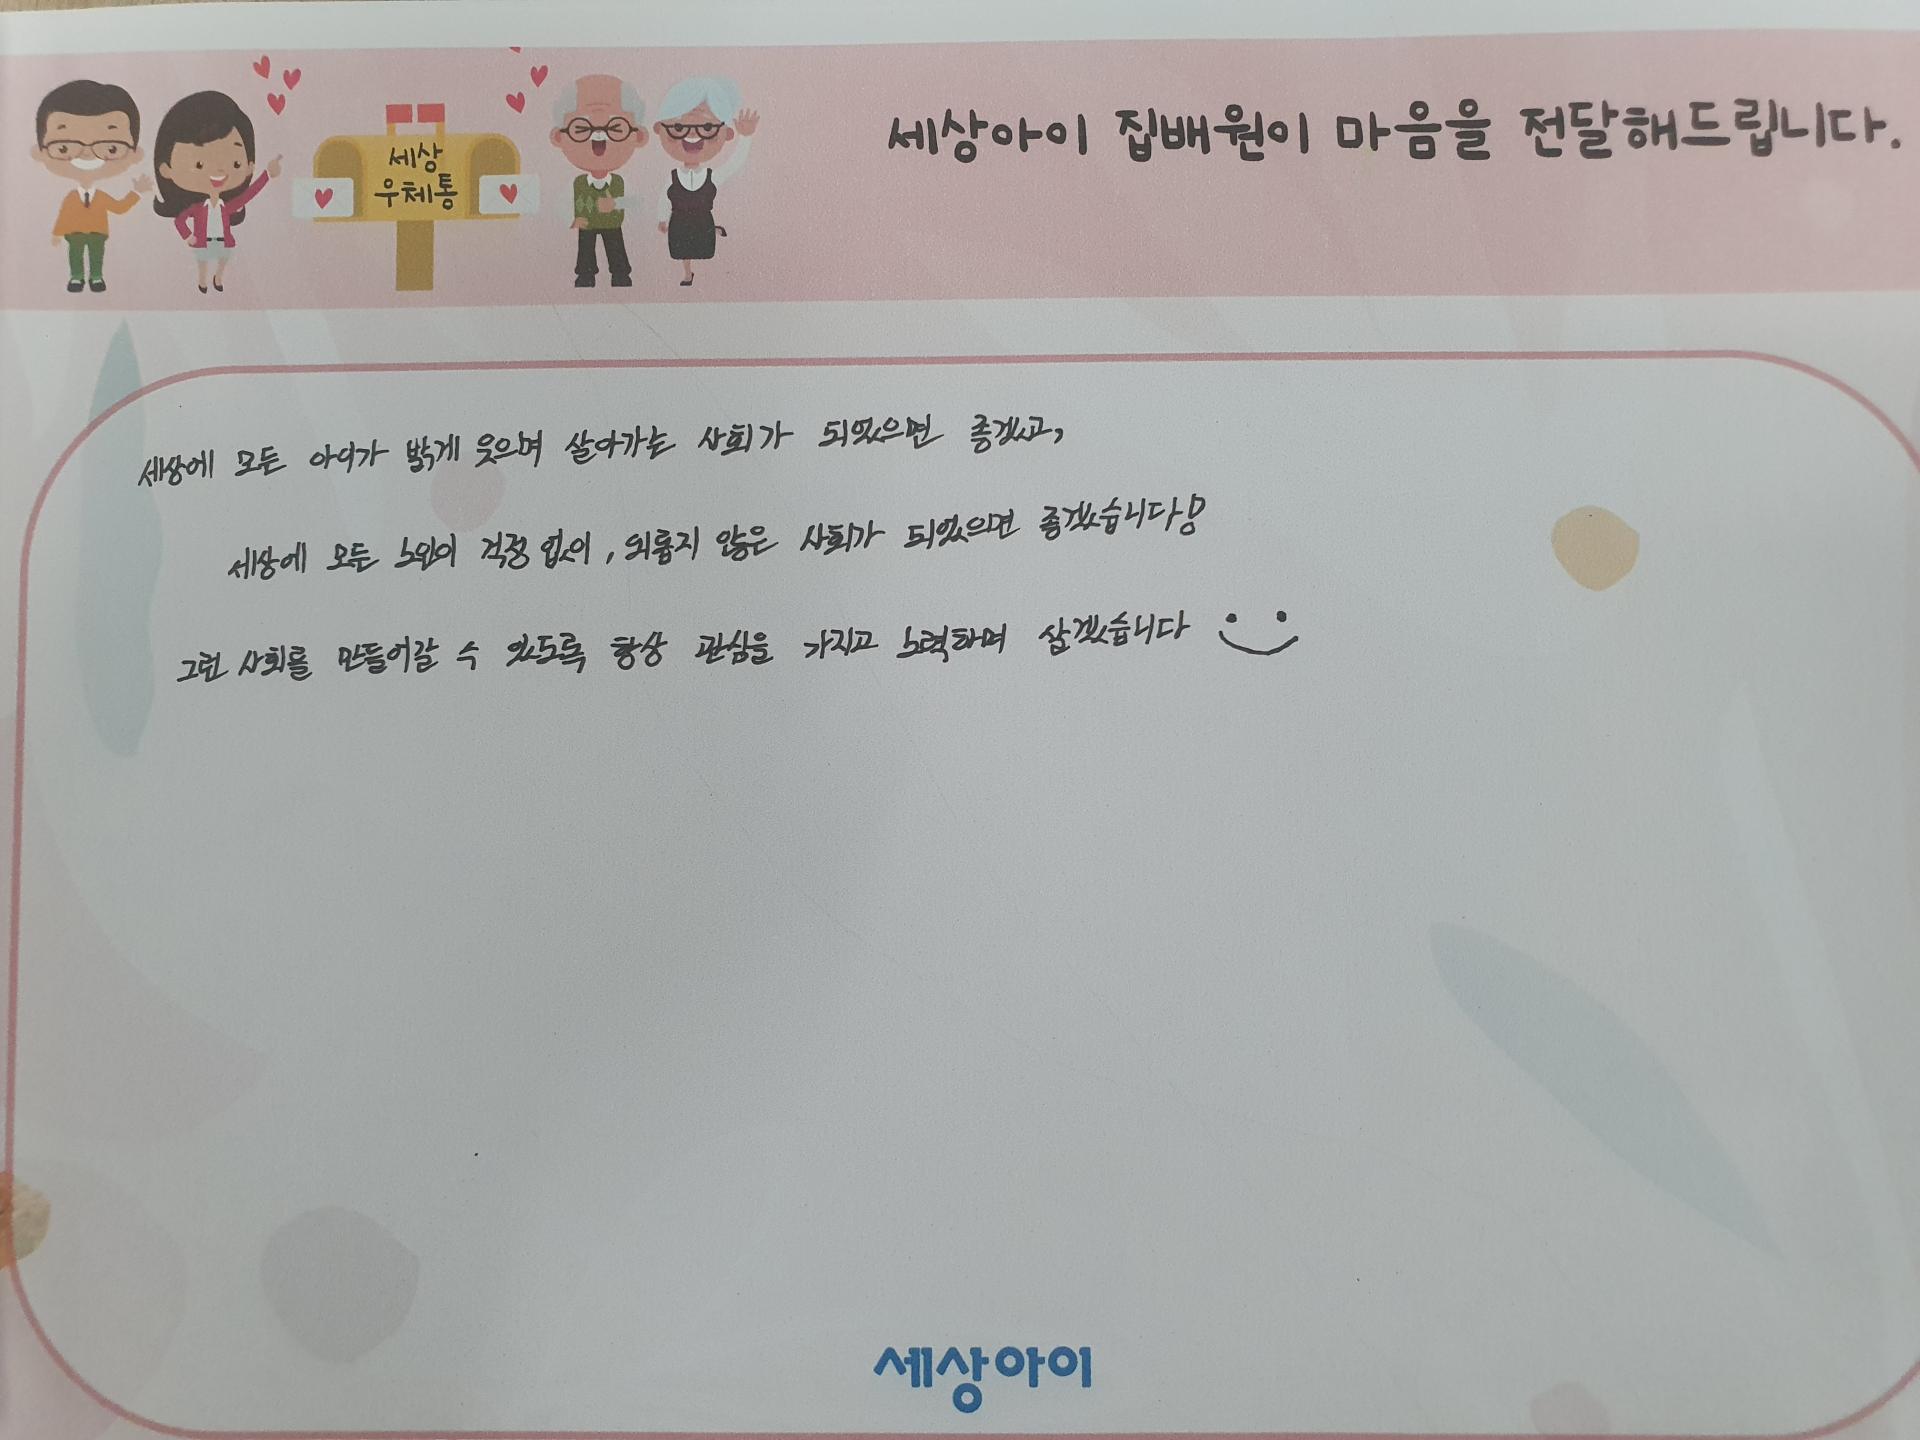 세상아이 집배원이 마음을 전달해드립니다.
세상
우체통
세상에 모든 아이가 밝게 웃으며 살아가는 사회가 되었으면 좋겠고,
세상에 모든 노인이 걱정 없이, 외롭지 않은 사회가 되었으면 좋겠습니다!
그런 사회를 만들어갈 수 있도록 항상 관심을 가지고 노력하며 살겠습니다
세상아이